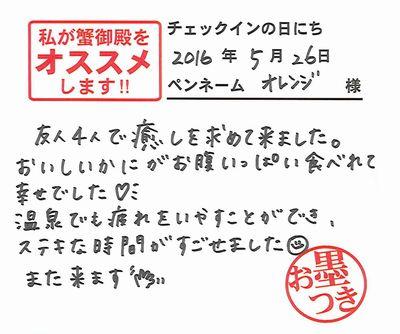 私が蟹御殿を
オススメ
します!!
チェックインの日にち
2016 年 5 月 26日
ペンネーム オレンジ 様
友人4人で癒しを求めて来ました。
おいしいかにがお腹いっぱい食べれて
幸せでした♡
温泉でも疲れをいやすことができ、
ステキな時間がすごせました☺
また来ます
お墨つき